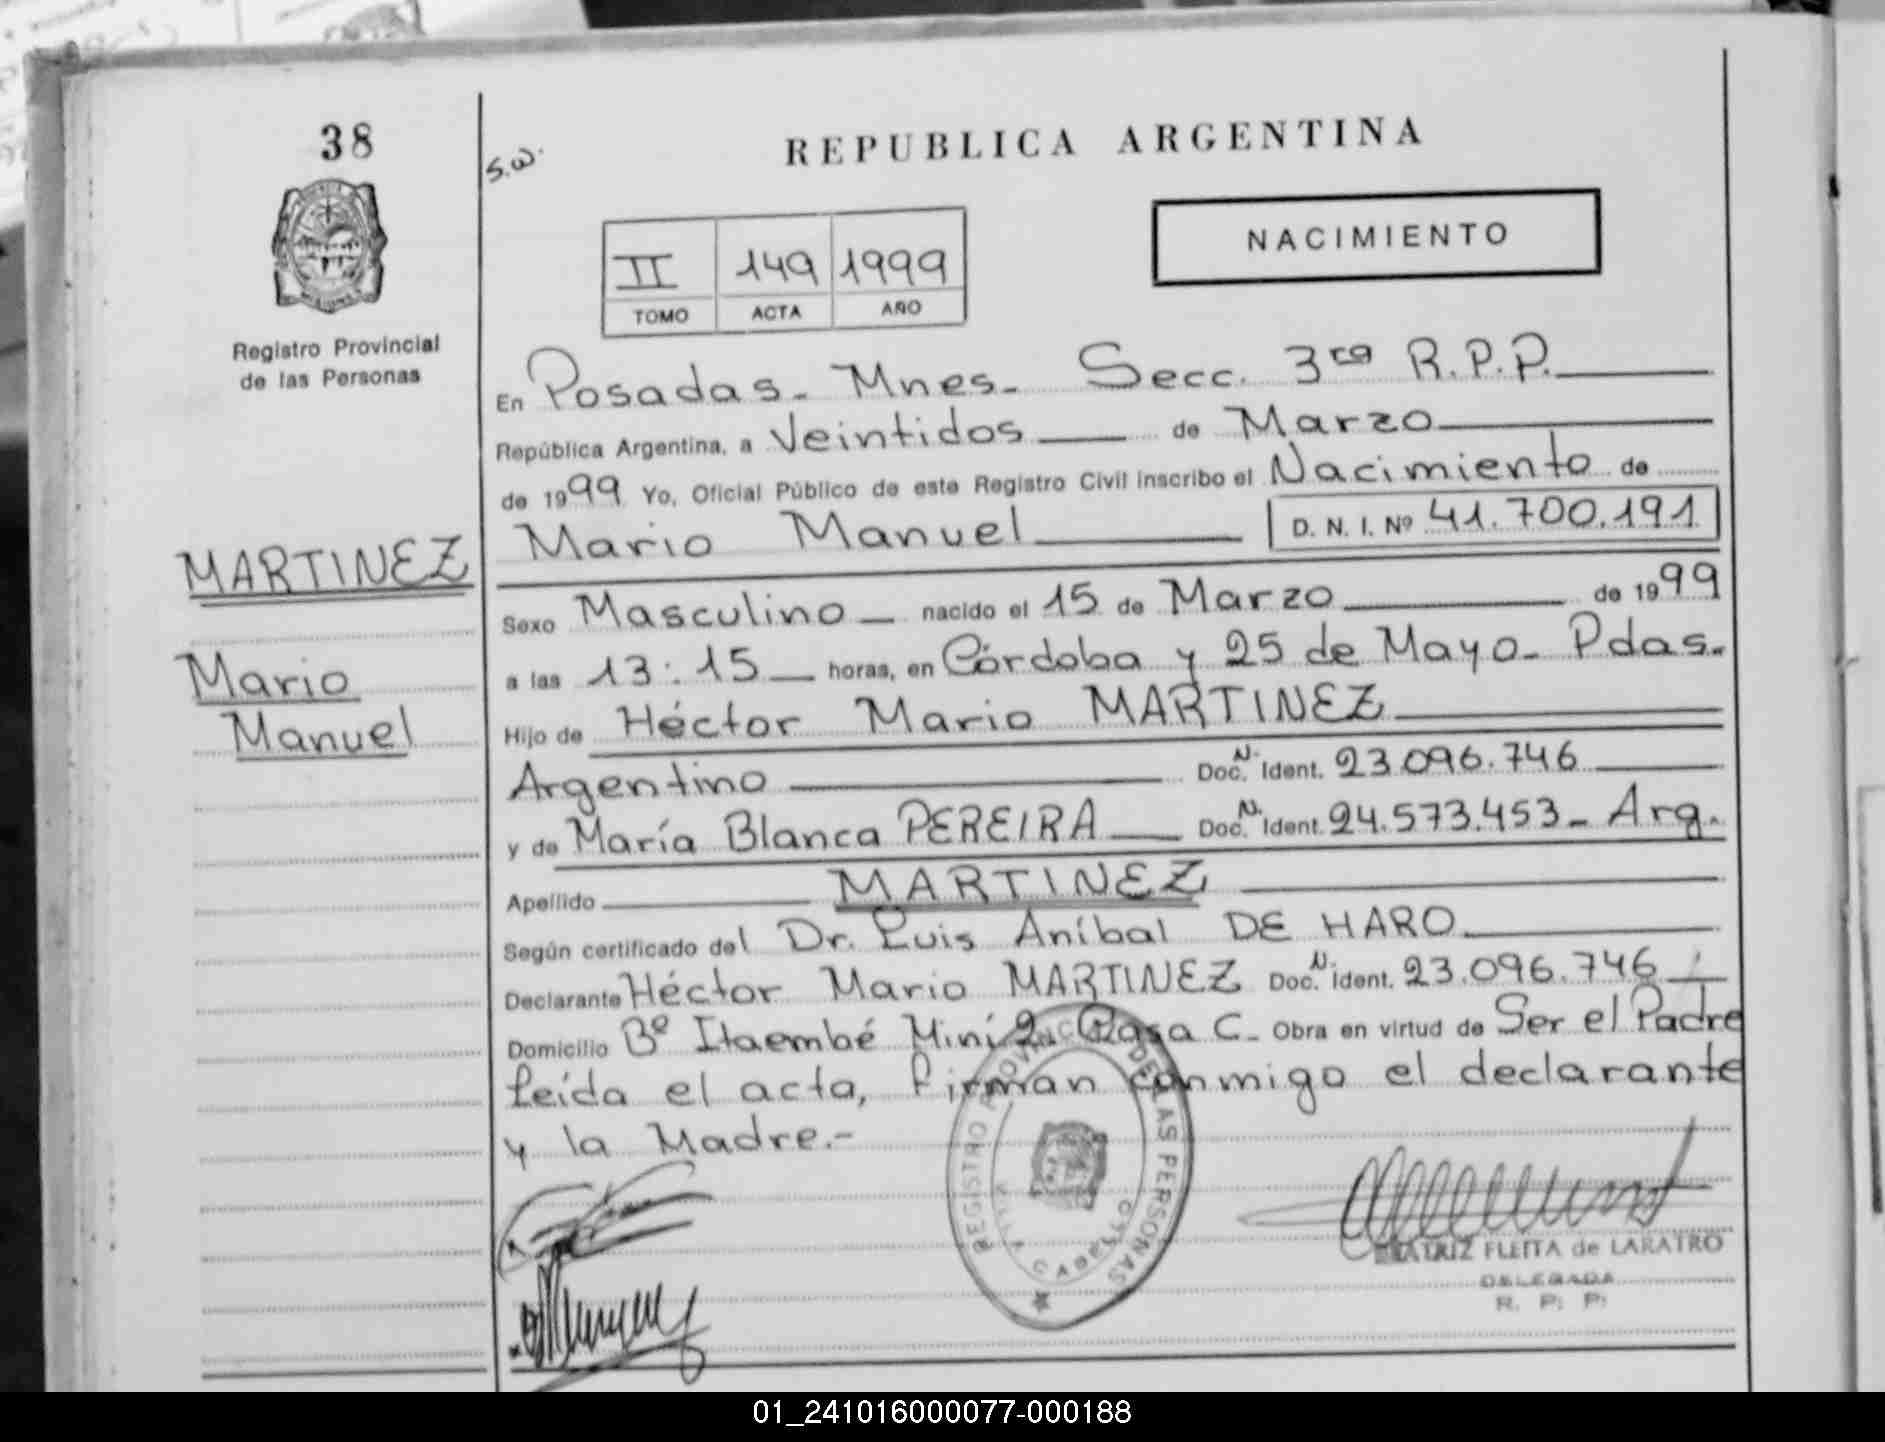 38
S.W.
REPUBLICA ARGENTINA
NACIMIENTO
II 149 1999
TOMO ACTA AÑO
Registro Provincial
de las Personas
En Posadas - Mnes - Secc. 3ra R.P.P.
República Argentina, a Veintidos de Marzo
de 1999 Yo, Oficial Público de este Registro Civil inscribo el Nacimiento de
Mario Manuel D. N. I. Nº 41.700.191
MARTINEZ
Mario
Manuel
Sexo Masculino nacido el 15 de Marzo de 1999
a las 13:15 horas, en Córdoba y 25 de Mayo - Pdas.
Hijo de Héctor Mario MARTINEZ
Argentino Doc. N. Ident. 23.096.746
y de María Blanca PEREIRA Doc. N. Ident. 24.573.453 - Arg.
Apellido MARTINEZ
Según certificado del Dr. Luis Aníbal DE HARO
Declarante Héctor Mario MARTINEZ Doc. N. ident. 23.096.746
Domicilio Bº Itaembé Miní 2 Casa C. Obra en virtud de Ser el Padre
Leída el acta, firman conmigo el declarante
y la Madre.-
REGISTRO PROVINCIAL DE LAS PERSONAS
VILLA CABELLO
BEATRIZ FLEITA de LARATRO
DELEGADA
R. P. P.
01_241016000077-000188